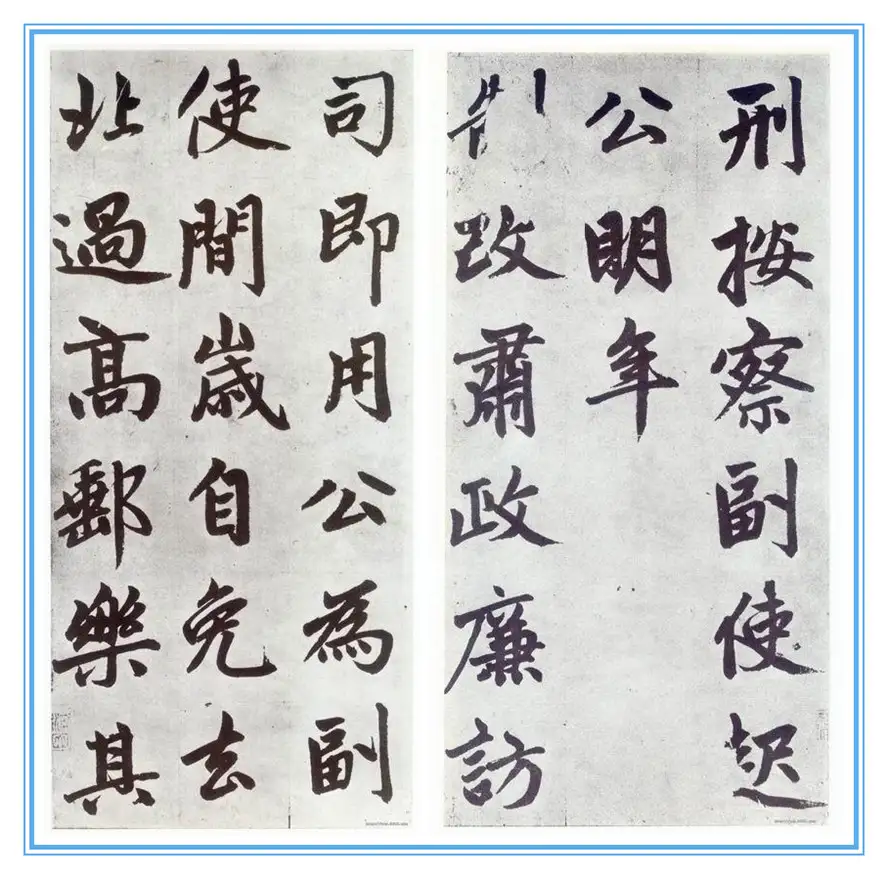 刑按察副使迟
公明年
制改肅政廉訪
司即用公為副
使間歲自免去
北過高郵樂其